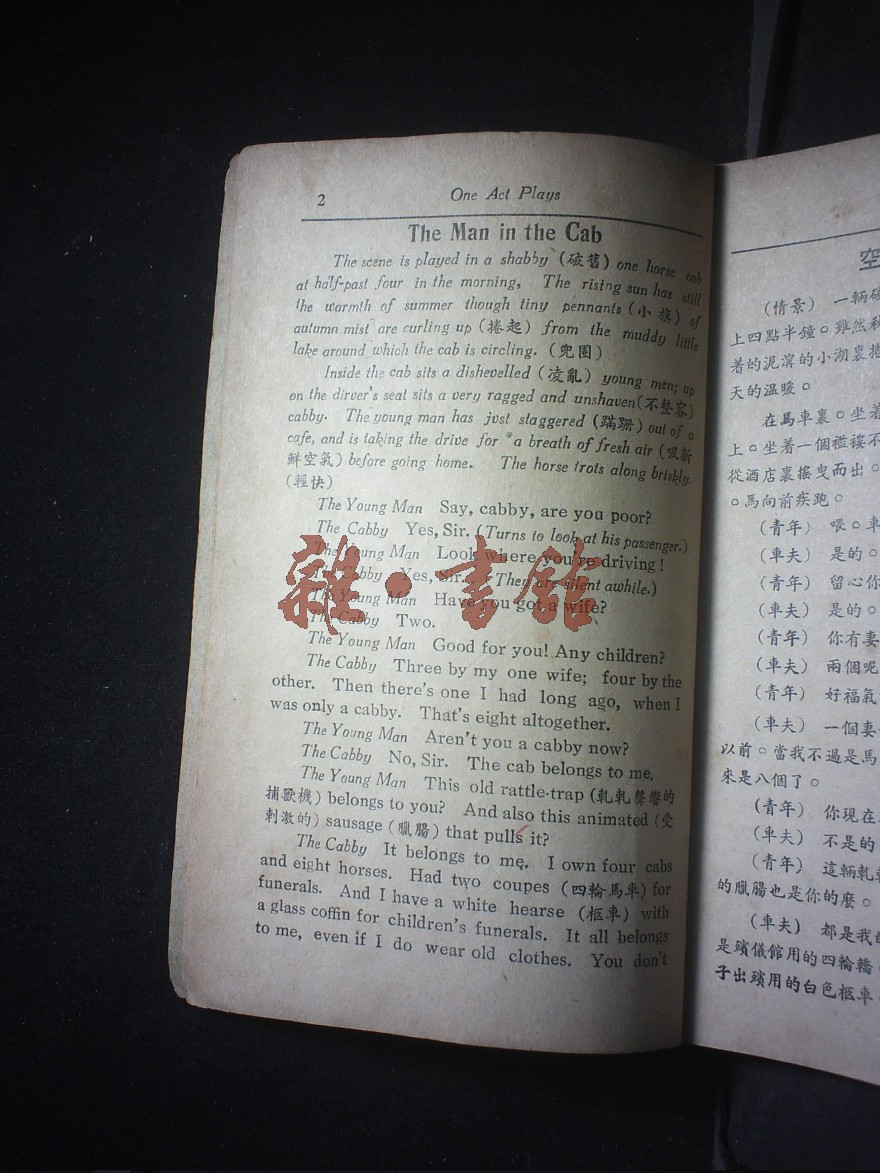 2
One Act Plays
The Man in the Cab
The scene is played in a shabby (破舊) one horse cab
at half-past four in the morning, The rising sun has still
the warmth of summer though tiny pennants (小旗) of
autumn mist are curling up (捲起) from the muddy little
lake around which the cab is circling. (兜圈)
Inside the cab sits a dishevelled (凌亂) young men; up
on the dirver's seat sits a very ragged and unshaven (不整容)
cabby. The young man has jvst staggered (蹣跚) out of a
cafe, and is taking the drive for *a breath of fresh air (吸新
鮮空氣) before going home. The horse trots along briskly.
(輕快)
The Young Man Say, cabby, are you poor?
The Cabby Yes, Sir. (Turns to look at his passenger.)
The Young Man Look where you're driving!
The Cabby Yes, Sir. (They are silent awhile.)
The Young Man Have you got a wife?
The Cabby Two.
The Young Man Good for you! Any children?
The Cabby Three by my one wife; four by the
other. Then there's one I had long ago, when I
was only a cabby. That's eight altogether.
The Young Man Aren't you a cabby now?
The Cabby No, Sir. The cab belongs to me.
The Young Man This old rattle-trap (軋軋聲響的
捕獸機) belongs to you? And also this animated (受
刺激的) sausage (臘腸) that pulls it?
The Cabby It belongs to me. I own four cabs
and eight horses. Had two coupes (四輪馬車) for
funerals. And I have a white hearse (柩車) with
a glass coffin for children's funerals. It all belongs
to me, even if I do wear old clothes. You don't
雜·書館
空
(情景) 一輛破
上四點半鐘。雖然秋
着的泥濘的小湖裏捲
天的温暖。
在馬車裏。坐着
上。坐着一個襤褸不
從酒店裏搖曳而出。
。馬向前疾跑。
(青年) 喂。車
(車夫) 是的。
(青年) 留心你
(車夫) 是的。
(青年) 你有妻
(車夫) 兩個呢
(青年) 好福氣
(車夫) 一個妻
以前。當我不過是馬
來是八個了。
(青年) 你現在
(車夫) 不是的
(青年) 這輛軋
的臘腸也是你的麼。
(車夫) 都是我的
是殯儀館用的四輪轎
子出殯用的白色柩車